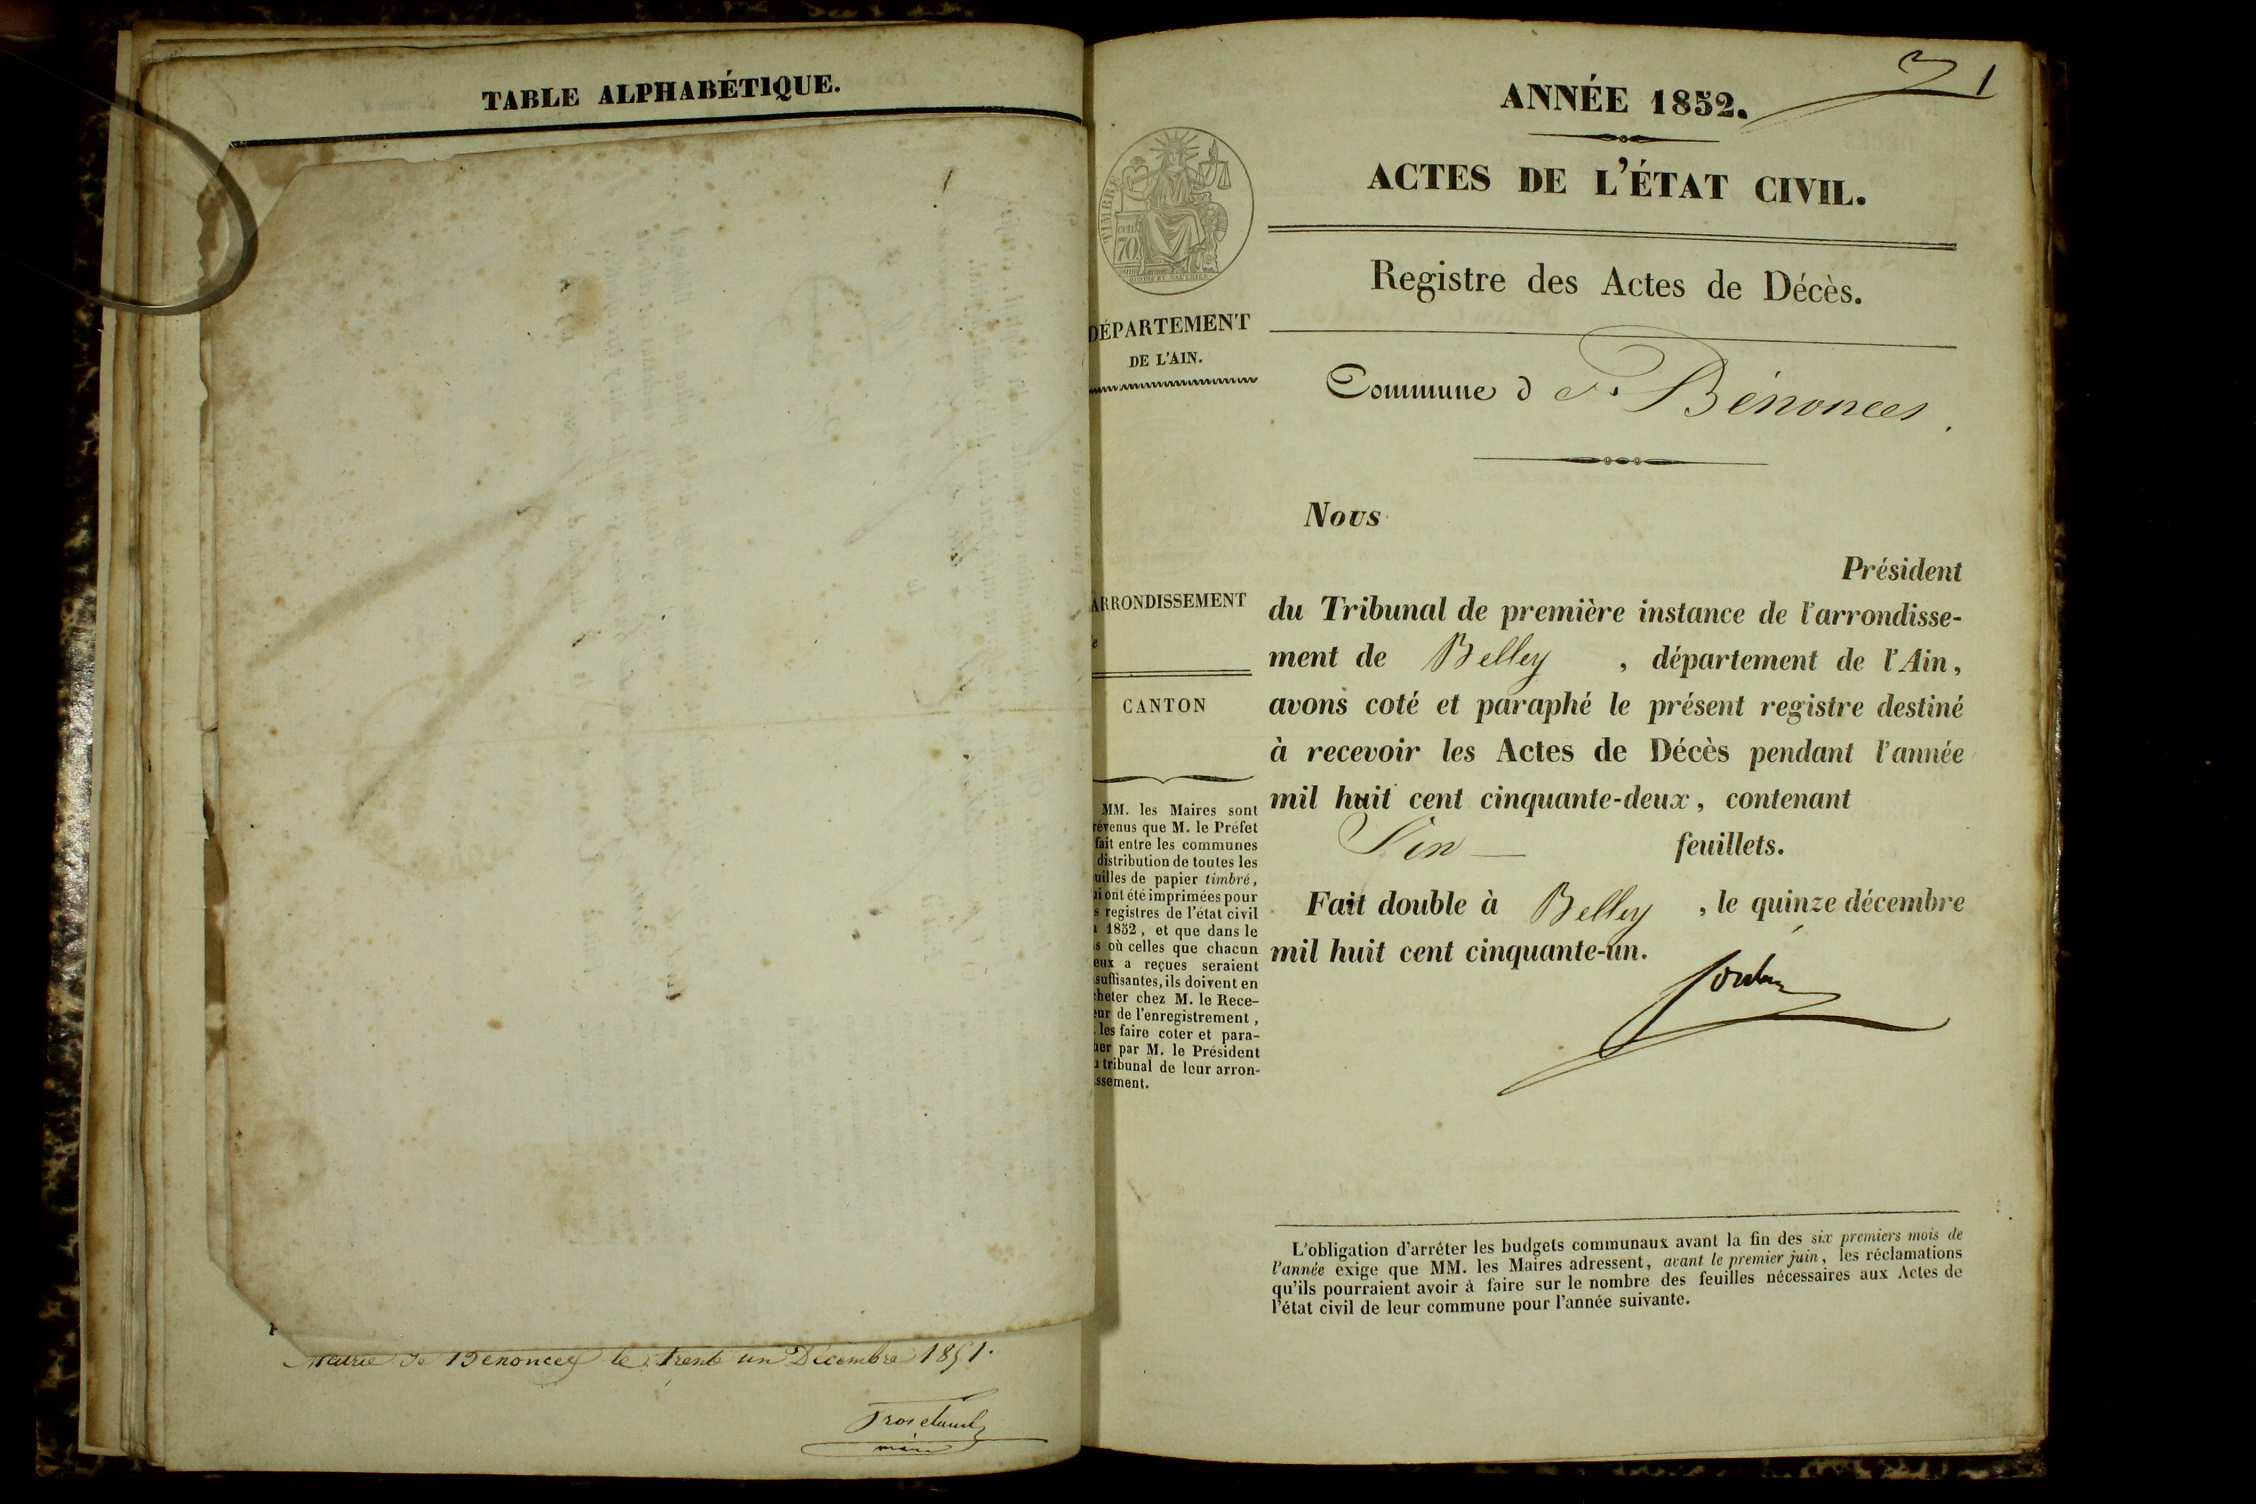 TABLE ALPHABÉTIQUE.
Mairie de Bénonces le trente un Décembre 1851.
maire
1
ANNÉE 1852.
ACTES DE L'ÉTAT CIVIL.
Registre des Actes de Décès.
TIMBRE
70
DÉPARTEMENT
DE L'AIN.
Commune d Bénonces.
Nous
Président
ARRONDISSEMENT
du Tribunal de première instance de l'arrondisse-
ment de Belley, département de l'Ain,
CANTON
avons coté et paraphé le présent registre destiné
à recevoir les Actes de Décès pendant l'année
mil huit cent cinquante-deux, contenant
feuillets.
Fait double à Belley, le quinze décembre
mil huit cent cinquante-un.
MM. les Maires sont
révenus que M. le Préfet
fait entre les communes
distribution de toutes les
uilles de papier timbré,
ui ont été imprimées pour
s registres de l'état civil
1852, et que dans le
s où celles que chacun
eux a reçues seraient
suffisantes, ils doivent en
cheter chez M. le Rece-
eur de l'enregistrement,
les faire coter et para-
her par M. le Président
u tribunal de leur arron-
ssement.
L'obligation d'arrêter les budgets communaux avant la fin des six premiers mois de
l'année exige que MM. les Maires adressent, avant le premier juin, les réclamations
qu'ils pourraient avoir à faire sur le nombre des feuilles nécessaires aux Actes de
l'état civil de leur commune pour l'année suivante.